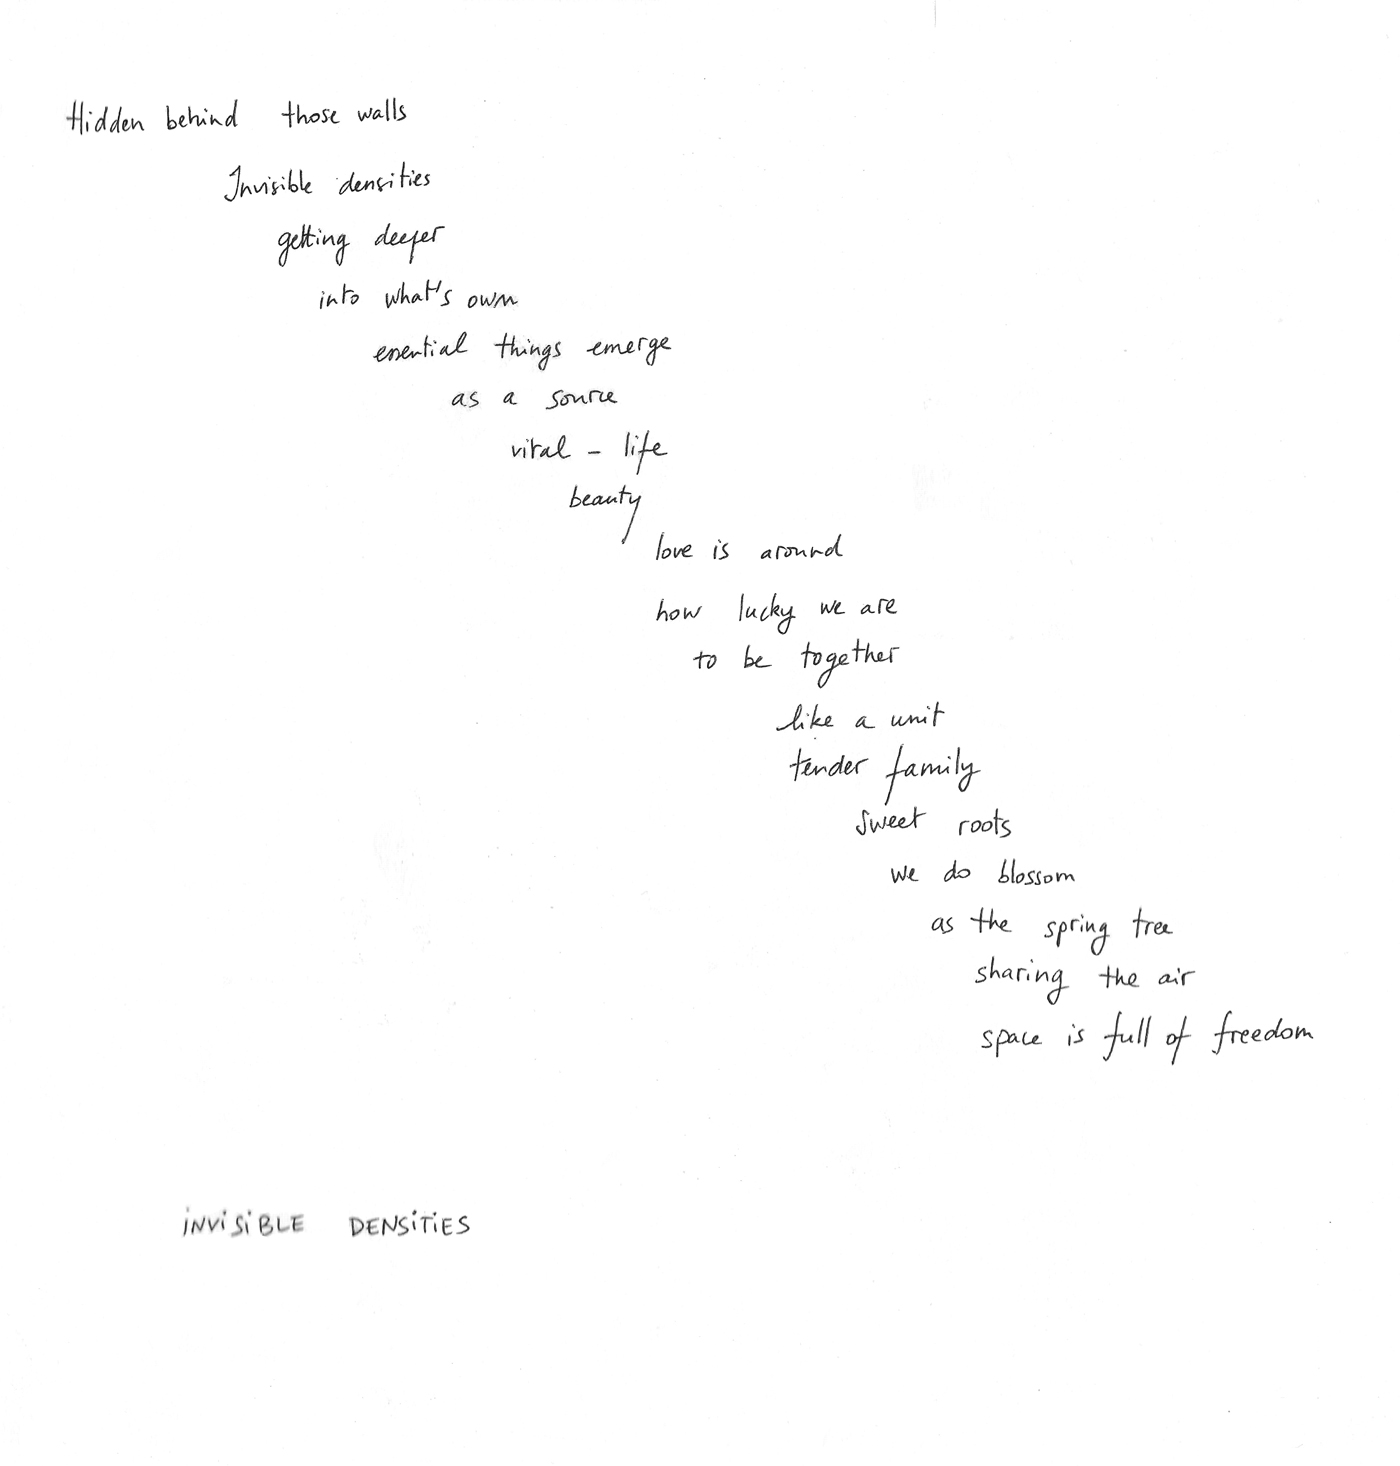 Hidden behind those walls
Invisible densities
getting deeper
into what's own
essential things emerge
as a source
vital - life
beauty
love is around
how lucky we are
to be together
like a unit
tender family
sweet roots
we do blossom
as the spring tree
sharing the air
space is full of freedom
INVISIBLE DENSITIES